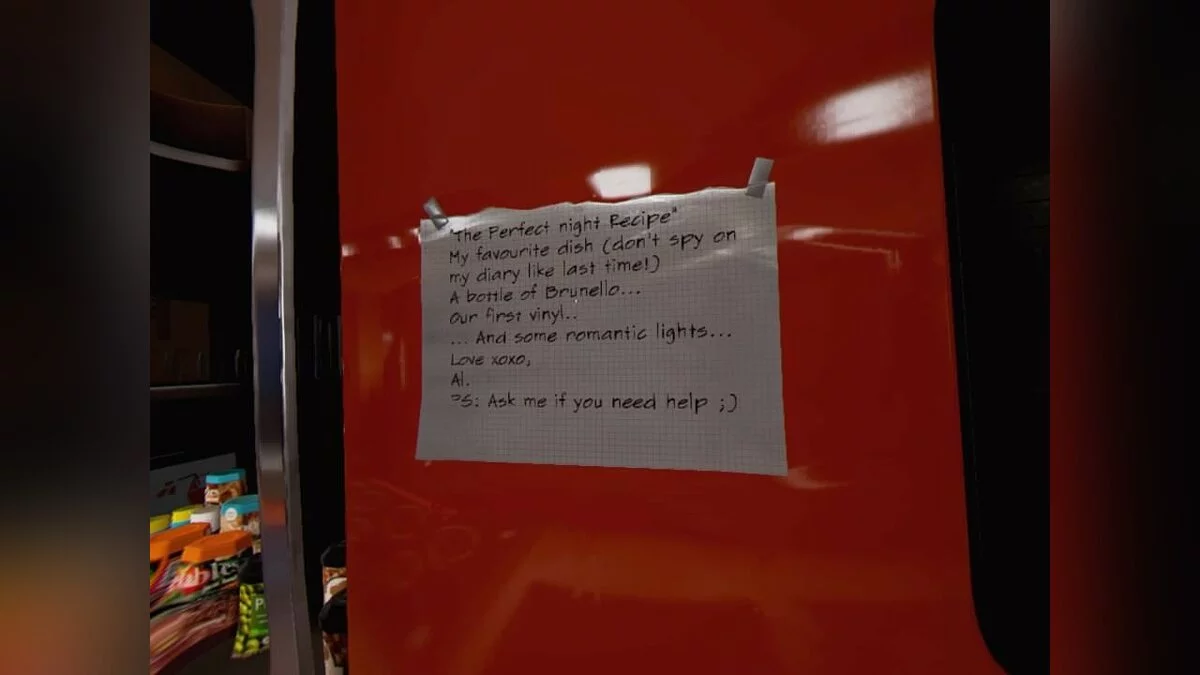 "The Perfect night Recipe"
My favourite dish (don't spy on
my diary like last time!)
A bottle of Brunello...
Our first vinyl..
... And some romantic lights...
Love xoxo,
Al.
PS: Ask me if you need help ;)